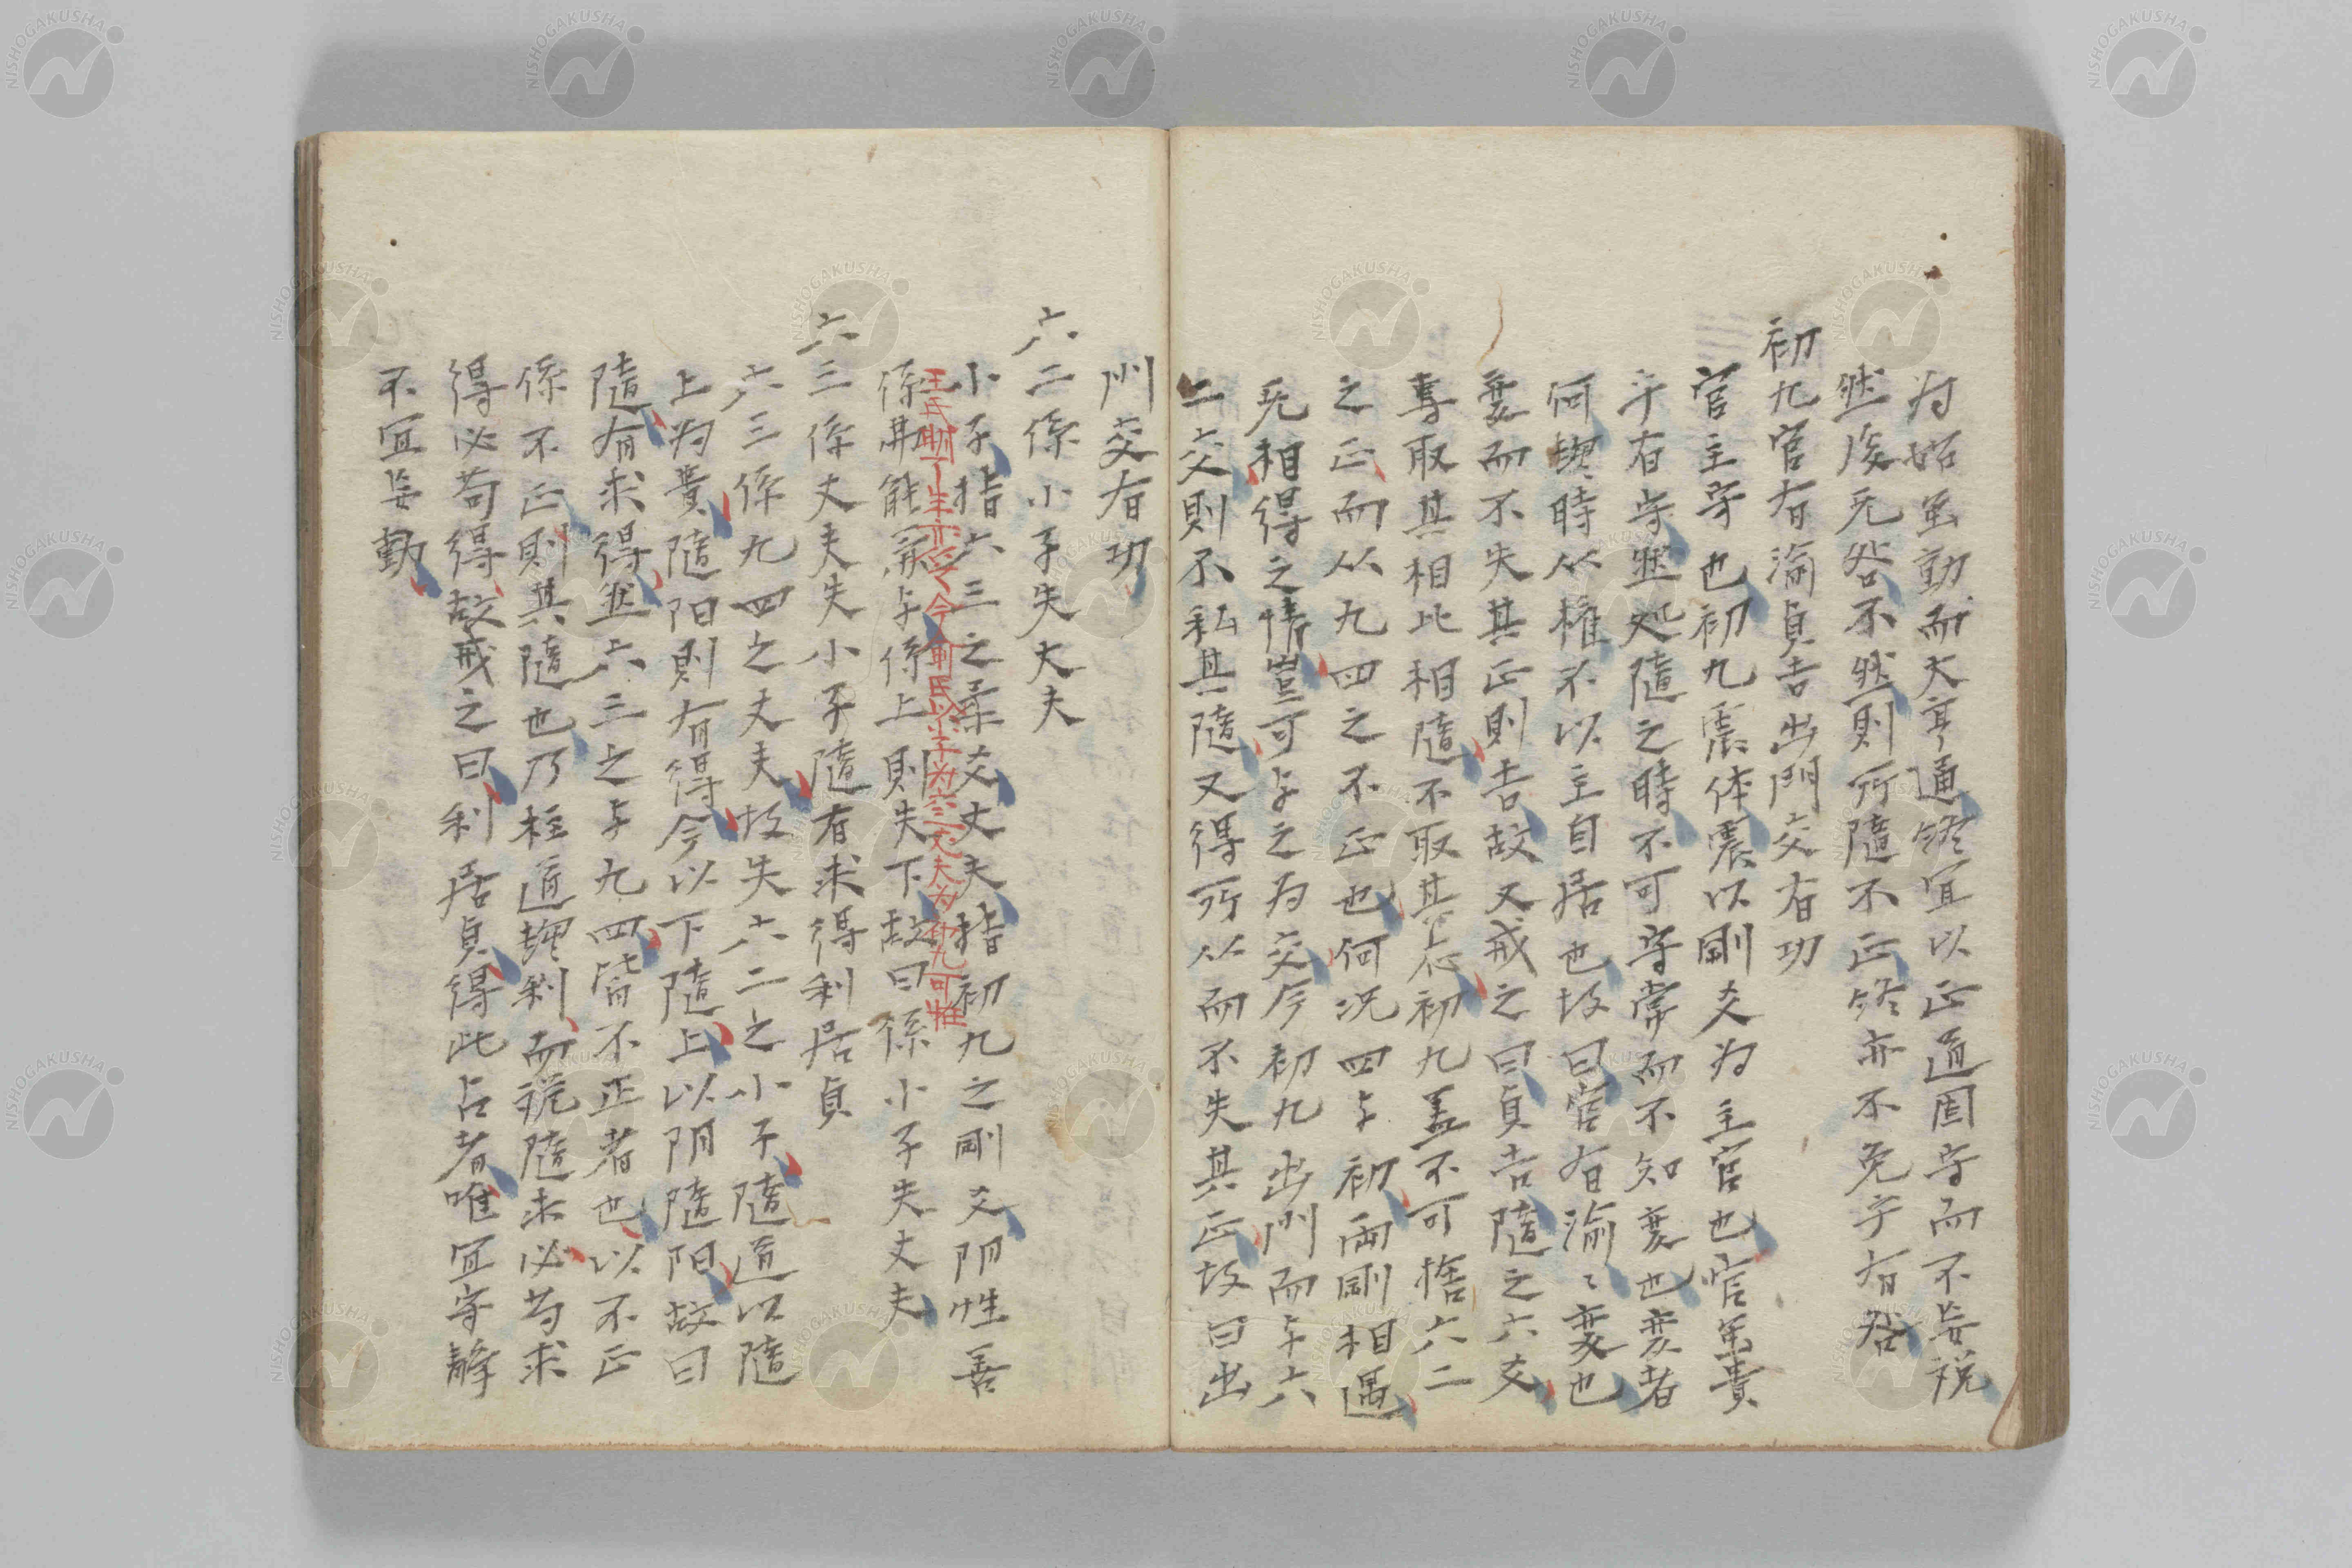 为始虽動而大亨通終宜以正道固守而不妄説
然后无咎不然則所隨不正終亦不免乎有咎
初九官有渝貞吉出門交有功
官主守也初九震体震以剛爻为主官也官虽貴
乎有守然処隨之時不可守常而不知変也変者
何揳時从権不以主自居也故曰官有渝〻変也
変而不失其正則吉故又戒之曰貞吉隨之六爻
専取其相比相隨不取其応初九盖不可捨六二
之正而从九四之不正也何况四与初両剛相遇
无相得之情豈可与之为交今初九出門而与六
二交則不私其隨又得所从而不失其正故曰出
门交有功
六二係小子失丈夫
小子指六三之柔爻丈夫指初九之剛爻阴性善
王氏 今 氏以小子为六三丈夫为初九可
係弗能兼与係上則失下故曰係小子失丈夫
六三係丈夫失小子隨有求得利居貞
六三係九四之丈夫故失六二之小子隨道以隨
上为貴隨阳則有得今以下隨上以阴隨阳故曰
隨有求得然六三之与九四皆不正者也以不正
係不正則其隨也乃枉道揳利而説隨求必苟求
得必苟得故戒之曰利居貞得此占者唯宜守静
不宜妄動